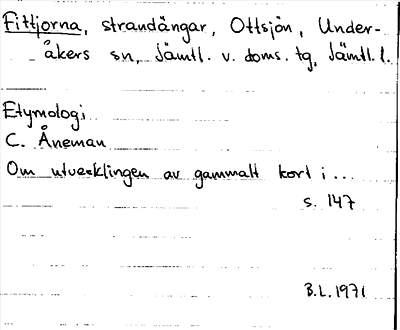 Fittjorna, strandängar, Ottsjön, Under-
åkers sn, Jämtl. v. doms. tg, Jämtl. l.
Etymologi
C. Åneman
Om utvecklingen av gammalt kort i ...
s. 147
B.L. 1971